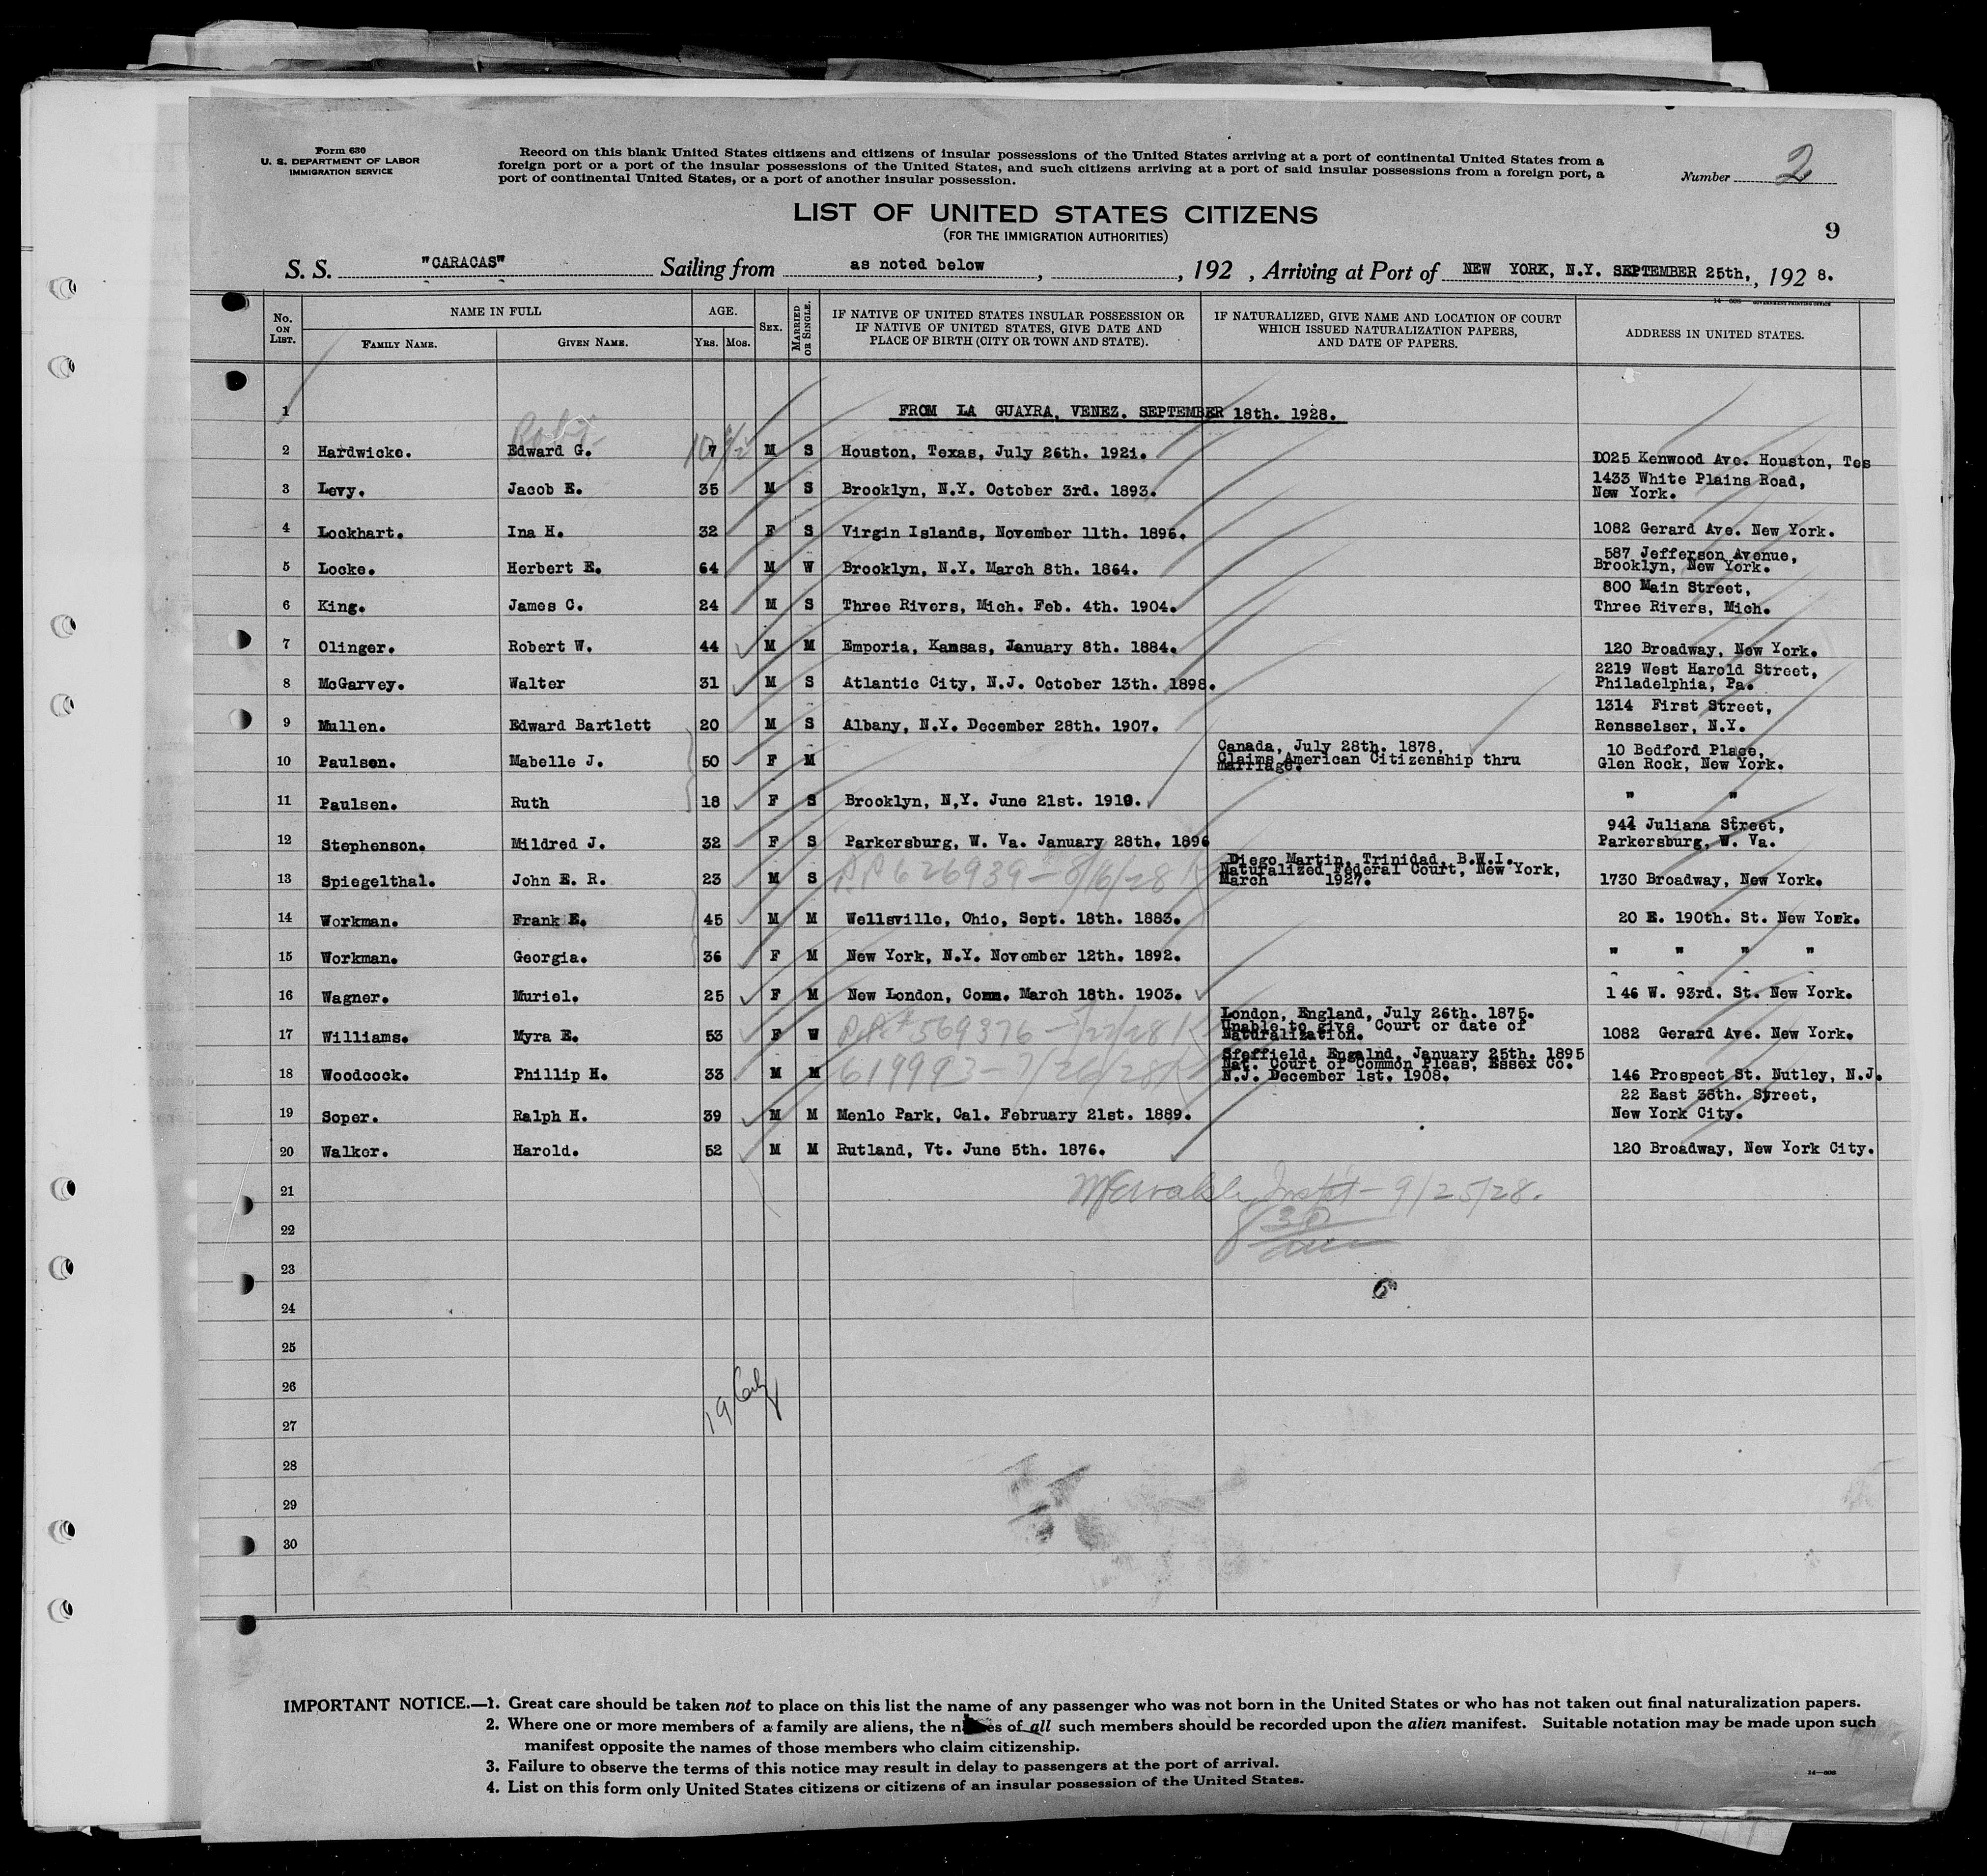 Form 630
U. S. DEPARTMENT OF LABOR
IMMIGRATION SERVICE
Record on this blank United States citizens and citizens of insular possessions of the United States arriving at a port of continental United States from a
foreign port or a port of the insular possessions of the United States, and such citizens arriving at a port of said insular possessions from a foreign port, a
port of continental United States, or a port of another insular possession.
Number 2
LIST OF UNITED STATES CITIZENS
(FOR THE IMMIGRATION AUTHORITIES)
9
S. S. "CARACAS" Sailing from as noted below, , 192 , Arriving at Port of NEW YORK, N.Y. SEPTEMBER 25th, , 192 8.
No. ON LIST. NAME IN FULL FAMILY NAME. GIVEN NAME. AGE. YRS. MOS. SEX. MARRIED OR SINGLE. IF NATIVE OF UNITED STATES INSULAR POSSESSION OR IF NATIVE OF UNITED STATES, GIVE DATE AND PLACE OF BIRTH (CITY OR TOWN AND STATE). IF NATURALIZED, GIVE NAME AND LOCATION OF COURT WHICH ISSUED NATURALIZATION PAPERS, AND DATE OF PAPERS. ADDRESS IN UNITED STATES.
1 FROM LA GUAYRA, VENEZ. SEPTEMBER 18th. 1928.
2 Hardwicke. Edward G. 7 M S Houston, Texas, July 26th. 1921. 1025 Kenwood Ave. Houston, Tes
3 Levy. Jacob E. 35 M S Brooklyn, N.Y. October 3rd. 1893. 1433 White Plains Road,
New York.
4 Lockhart. Ina H. 32 F S Virgin Islands, November 11th. 1896. 1082 Gerard Ave. New York.
5 Locke. Herbert E. 64 M W Brooklyn, N.Y. March 8th. 1864. 587 Jefferson Avenue,
Brooklyn, New York.
6 King. James C. 24 M S Three Rivers, Mich. Feb. 4th. 1904. 800 Main Street,
Three Rivers, Mich.
7 Olinger. Robert W. 44 M M Emporia, Kansas, January 8th. 1884. 120 Broadway, New York.
8 McGarvey. Walter 31 M S Atlantic City, N.J. October 13th. 1898. 2219 West Harold Street,
Philadelphia, Pa.
9 Mullen. Edward Bartlett 20 M S Albany, N.Y. December 28th. 1907. 1314 First Street,
Rensselser, N.Y.
10 Paulsen. Mabelle J. 50 F M Canada, July 28th. 1878, Claims American Citizenship thru marriage. 10 Bedford Place,
Glen Rock, New York.
11 Paulsen. Ruth 18 F S Brooklyn, N,Y. June 21st. 1910. " "
12 Stephenson. Mildred J. 32 F S Parkersburg, W. Va. January 28th. 1896 942 Juliana Street,
Parkersburg, W. Va.
13 Spiegelthal. John E. R. 23 M S P.P 626939 - 8/16/28 Diego Martin, Trinidad, B.W.I. Naturalized Federal Court, New York, March 1927. 1730 Broadway, New York.
14 Workman. Frank E. 45 M M Wellsville, Ohio, Sept. 18th. 1883. 20 E. 190th. St. New York.
15 Workman. Georgia. 36 F M New York, N.Y. November 12th. 1892. " " " "
16 Wagner. Muriel. 25 F M New London, Conn. March 18th. 1903. 146 W. 93rd. St. New York.
17 Williams. Myra E. 53 F W P.P.# 569376 - London, England, July 26th. 1875. Unable to give Court or date of Naturalization. 1082 Gerard Ave. New York.
18 Woodcock. Phillip H. 33 M M 619993 - 7/26/28 Sfeffield, Engalnd, January 25th. 1895 Nat. Court of Common Pleas, Essex Co. N.J. December 1st. 1908. 146 Prospect St. Nutley, N.J.
19 Soper. Ralph H. 39 M M Menlo Park, Cal. February 21st. 1889. 22 East 38th. Street,
New York City.
20 Walker. Harold. 52 M M Rutland, Vt. June 5th. 1876. 120 Broadway, New York City.
21 9/25/28.
22
23
24
25
26
27
28
29
30
IMPORTANT NOTICE.—1. Great care should be taken not to place on this list the name of any passenger who was not born in the United States or who has not taken out final naturalization papers.
2. Where one or more members of a family are aliens, the names of all such members should be recorded upon the alien manifest. Suitable notation may be made upon such
manifest opposite the names of those members who claim citizenship.
3. Failure to observe the terms of this notice may result in delay to passengers at the port of arrival.
4. List on this form only United States citizens or citizens of an insular possession of the United States.